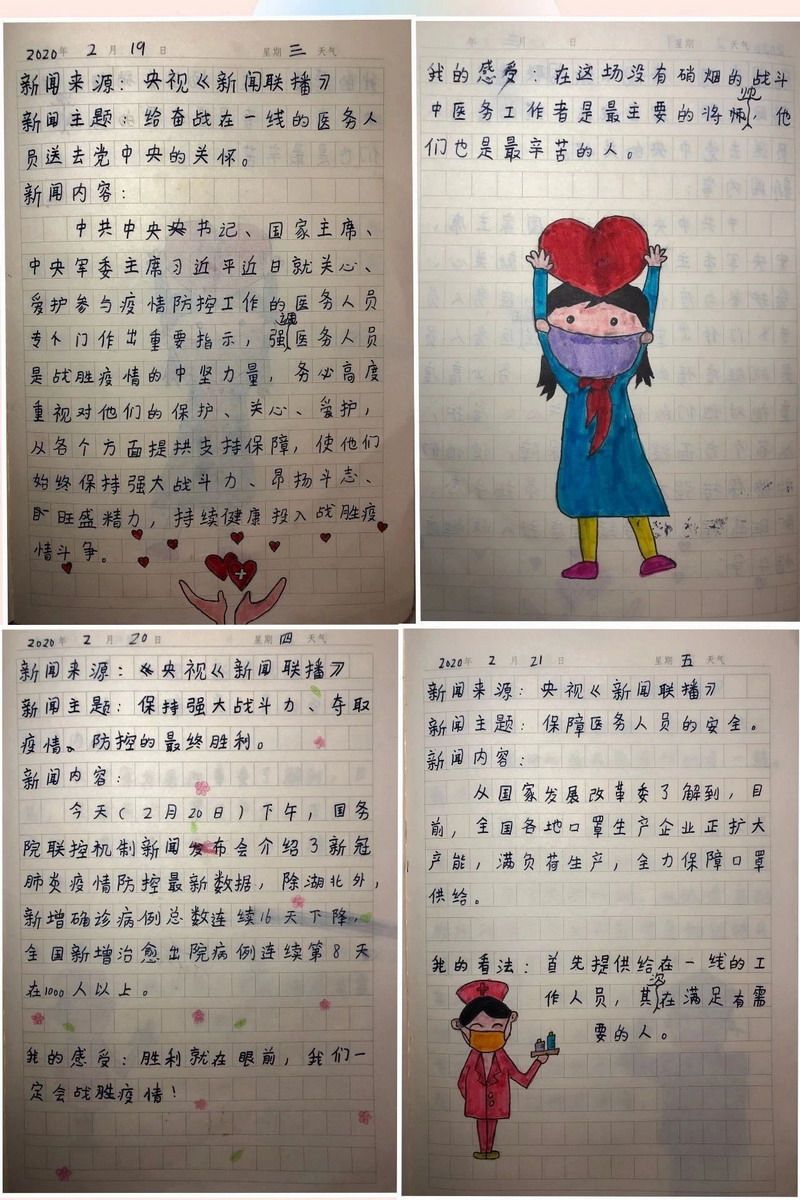 2020年 2月 19日 星期三 天气
新闻来源：央视《新闻联播》
新闻主题：给奋战在一线的医务人
员送去党中央的关怀。
新闻内容：
中共中央书记、国家主席、
中央军委主席习近平近日就关心、
爱护参与疫情防控工作的医务人员
专门作出重要指示，强调医务人员
是战胜疫情的中坚力量，务必高度
重视对他们的保护、关心、爱护，
从各个方面提拱支持保障，使他们
始终保持强大战斗力、昂扬斗志、
旺盛精力，持续健康投入战胜疫
情斗争。
年 月 日 星期 天气
我的感受：在这场没有硝烟的战斗
中医务工作者是最主要的将帅，他
们也是最辛苦的人。
2020年 2月 20日 星期四 天气
新闻来源：《央视《新闻联播》
新闻主题：保持强大战斗力、夺取
疫情、防控的最终胜利。
新闻内容：
今天(2月20日)下午，国务
院联控机制新闻发布会介绍了新冠
肺炎疫情防控最新数据，除湖北外，
新增确诊病例总数连续16天下降，
全国新增治愈出院病例连续第8天
在1000人以上。
我的感受：胜利就在眼前，我们一
定会战胜疫情！
2020年 2月 21日 星期五 天气
新闻来源：央视《新闻联播》
新闻主题：保障医务人员的安全。
新闻内容：
从国家发展改革委了解到，目
前，全国各地口罩生产企业正扩大
产能，满负荷生产，全力保障口罩
供给。
我的看法：首先提供给在一线的工
作人员，其次在满足有需
要的人。